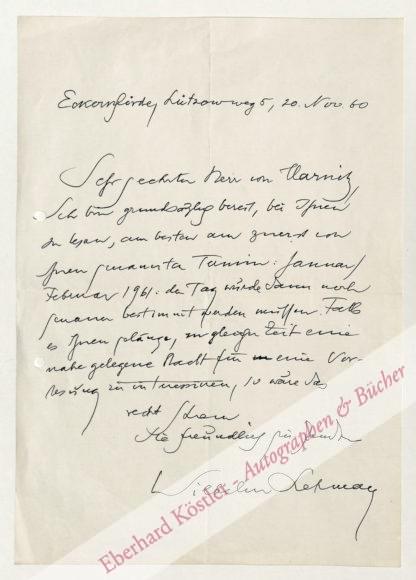 Eckernförde, Lützowweg 5, 20. Nov. 60
Sehr geehrter Herr von
Ich bin grundsätzlich bereit, bei Ihnen
zu lesen, am besten am zuerst von
Ihnen genannten Termin: Januar/
Februar 1961: der Tag würde dann noch
genauer bestimmt werden müssen. Falls
es Ihnen gelänge, zu gleicher Zeit eine
nahe gelegene Stadt für eine Vor-
lesung zu interessieren, so wäre das
recht schön
Sie freundlich grüßend
Wilhelm Lehmann
Eberhard Köstler - Autographen & Bücher